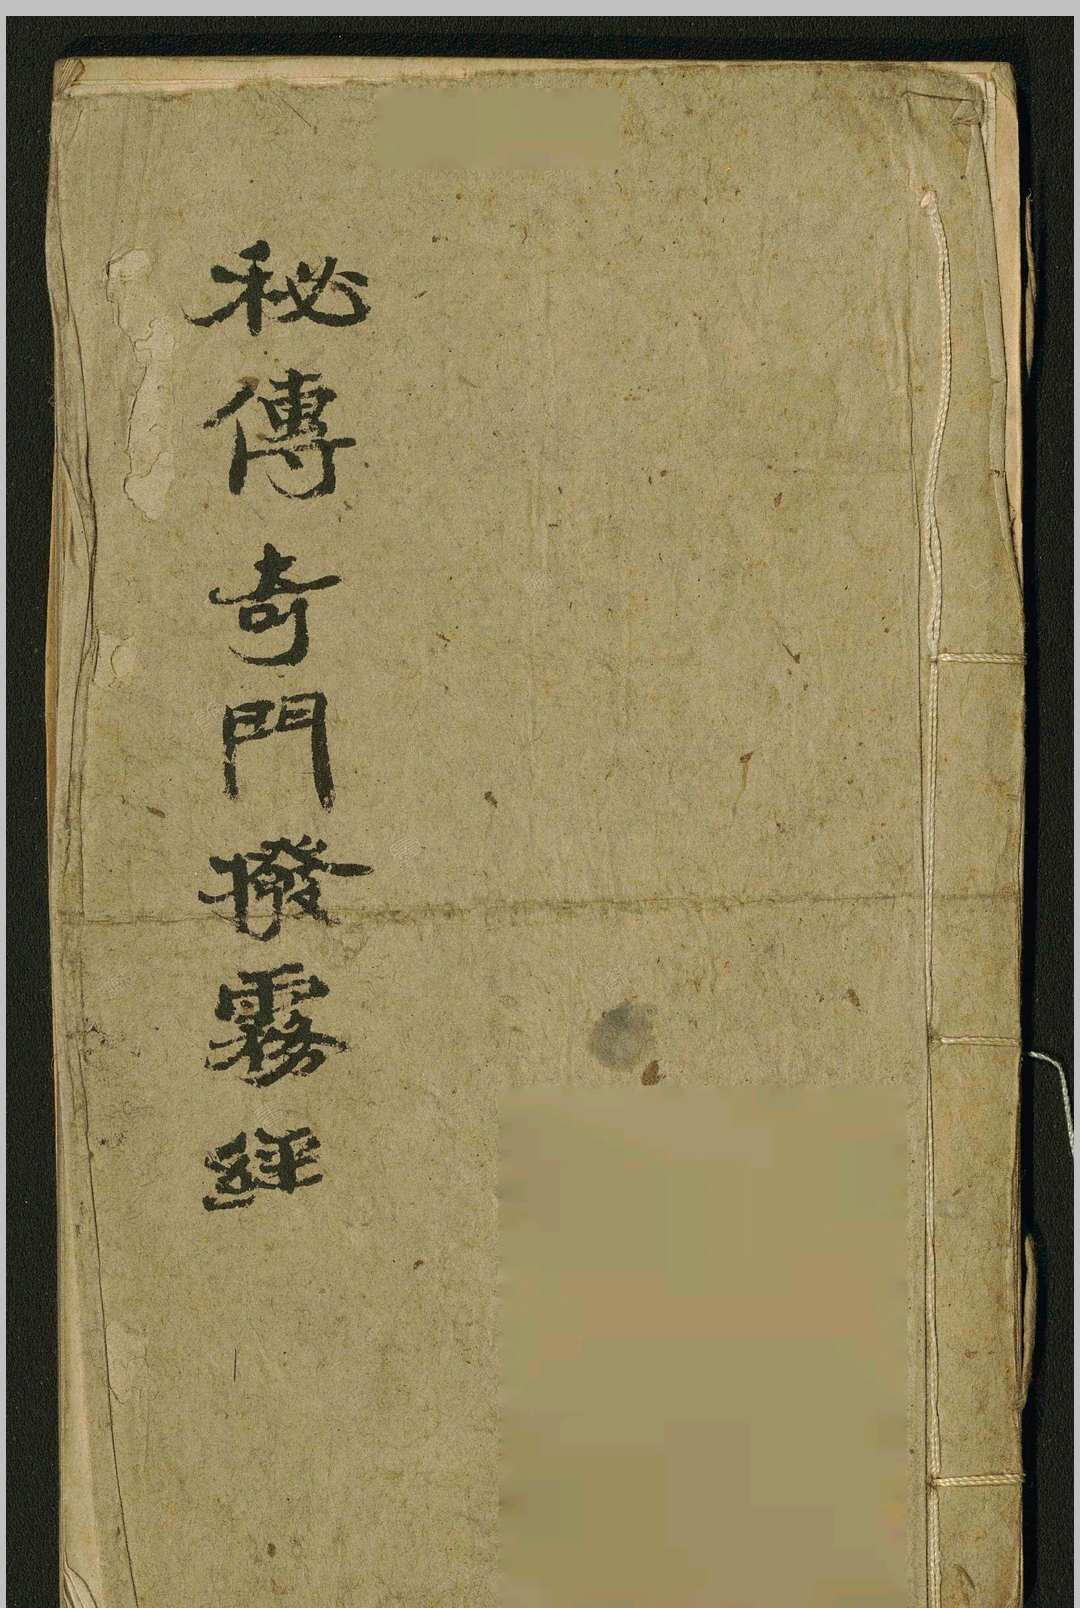 秘傳奇門撥霧經